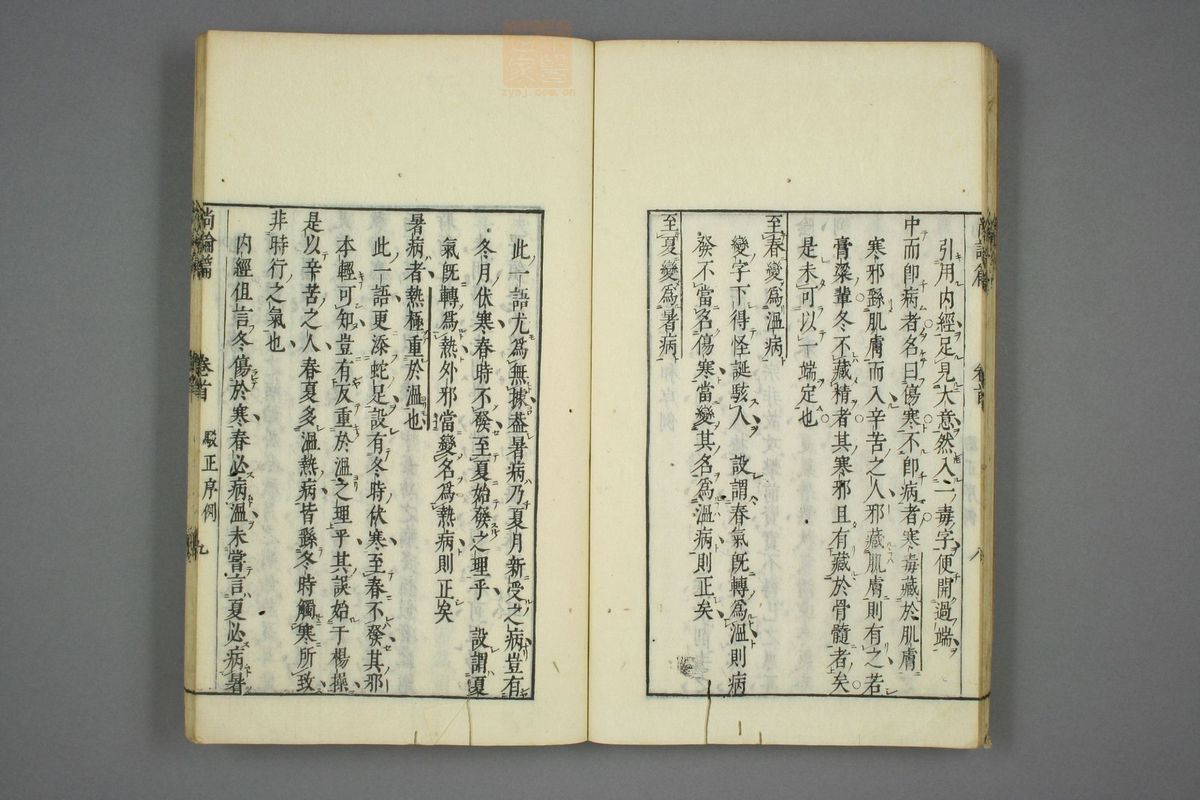 引用內經足見大意然入一毒字便開過端
中而即病者名曰傷寒不即病者寒毒藏於肌膚
寒邪繇肌膚而入辛苦之人邪藏肌膚則有之若
膏粱輩冬不藏精者其寒邪且有藏於骨髓者矣
是未可以一端定也
至春變爲溫病
變字下得怪誕駭人設謂春氣既轉爲溫則病
發不當名傷寒當變其名爲溫病則正矣
至夏變爲暑病
此一語尤爲無據葢暑病乃夏月新受之病豈有
冬月伏寒春時不發至夏始發之理乎設謂夏
氣既轉爲熱外邪當變名爲熱病則正矣
暑病者熱極重於溫也
此一語更添蛇足設有冬時伏寒至春不發其邪
本輕可知豈有反重於溫之理乎其誤始于楊操
是以辛苦之人春夏多溫熱病皆繇冬時觸寒所致
非時行之氣也
內經但言冬傷於寒春必病溫未嘗言夏必病暑
尚論篇 卷首 駁正序例 九
zysj.com.cn